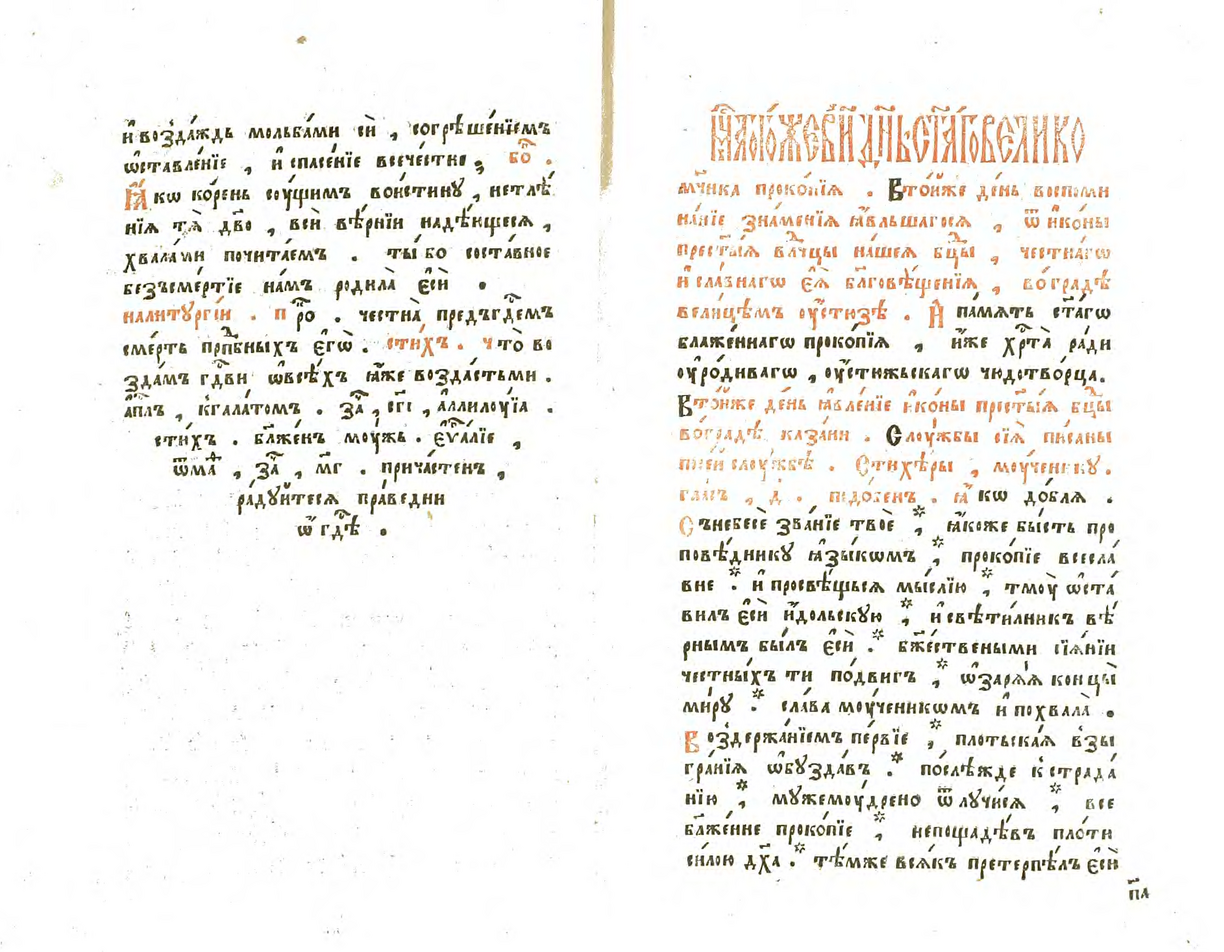 и҆ воз̾да́ждь мольба́ми сѝ , согрѣше́нїемъ
ѡ҆ставле́нїе , и҆ спасе́нїе всече́стно , бо̑ .
Ꙗ҆́кѡ ко́рень соу́щимъ вои́стинꙋ , нетлѣ́
нїѧ тѧ̀ дв҃о , всѝ вѣ́рнїи надѣ́ющесѧ ,
хвала́ми почита́емъ . ты́ бо соста́вное
безъсме́ртїе на́мъ родила̀ є҆сѝ .
налитꙋргі́и . про̑ . че́стна̀ пред̾ъ гд҇емъ
сме́рть прпⷣбныхъ є҆гѡ̀ . сти́хъ . что̀ во
зда́мъ гдⷭ҇ви ѡ҆ всѣ́хъ ꙗ҆̀же воздастьми .
а҆пⷭ҇лъ , к̾галатомъ . за̑ , сг҃і , а҆ллилоуїа .
сти́хъ . бл҃же́нъ моу́жъ . є҆ѵⷢ҇алїе ,
ѿма̑ѳ , за̑ , мг҃ . прича́стенъ ,
ра́дꙋйтесѧ пра́веднїи
ѡ҆ гдⷭ҇ѣ .
мцⷭ҇а тогѡ́же в҃ и҃ дн҃ь ст҃а́гѡ вели́ко
мч҃ника проко́пїѧ . Вто́йже де́нь воспоми
на́нїе зна́менїѧ ꙗ҆́вльшагосѧ , ѿ и҆ко́ны
прест҃ы́ѧ влⷣчцы на́шеѧ бцⷣы , честна́гѡ
и҆ сла́внагѡ є҆ѧ̀ бл҃говѣ́щенїѧ , во гра́дѣ
вели́цѣмъ оу҆́стюзѣ . А҆ па́мѧть ст҃а́гѡ
блаже́ннагѡ проко́пїѧ , и҆́же хрⷭ҇та̀ ра́ди
оу҆ро́дивагѡ , оу҆́стюжьскагѡ чюдотво́рца .
Вто́йже де́нь ꙗ҆вле́нїе и҆ко́ны прест҃ы́ѧ бцⷣы
во гра́дѣ каза́ни . Слоу́жбы сїѧ̀ пи́саны
по се́й слоу́жбѣ . Стихе́ры , моу́ченикꙋ .
гла́съ , д҃ . подо́бенъ . ꙗ҆́кѡ до́блѧ .
Съ небесѐ зва́нїе твоѐ , ꙗ҆́коже бы́сть про
повѣ́дникꙋ ꙗ҆зы́кѡмъ , проко́пїе всесла́
вне . и҆ просвѣ́щьсѧ мы́слїю , тмоу̀ ѡ҆ста́
вилъ є҆сѝ и҆́дольскꙋю , и҆ свѣти́лникъ вѣ́
рнымъ бы́лъ є҆сѝ . бж҃е́ствеными сїѧ́нїи
че́стныхъ ти по́двигъ , ѡ҆зарѧ́ѧ концы̀
ми́рꙋ . сла́ва моу́ченикѡмъ и҆ похвала̀ .
Воздержа́нїемъ пе́рвїе , плотьска́ѧ взы
гра́нїѧ ѡ҆бꙋзда́въ . послѣ́жде к̾ страда́
нїю , мꙋжемоу́дрено ѿлꙋчи́сѧ , все
бл҃же́нне проко́пїе , непощадѣ́въ пло́ти
си́лою дх҃а . тѣ́мже всѧ́къ претерпѣ́лъ є҆сѝ
п҃а